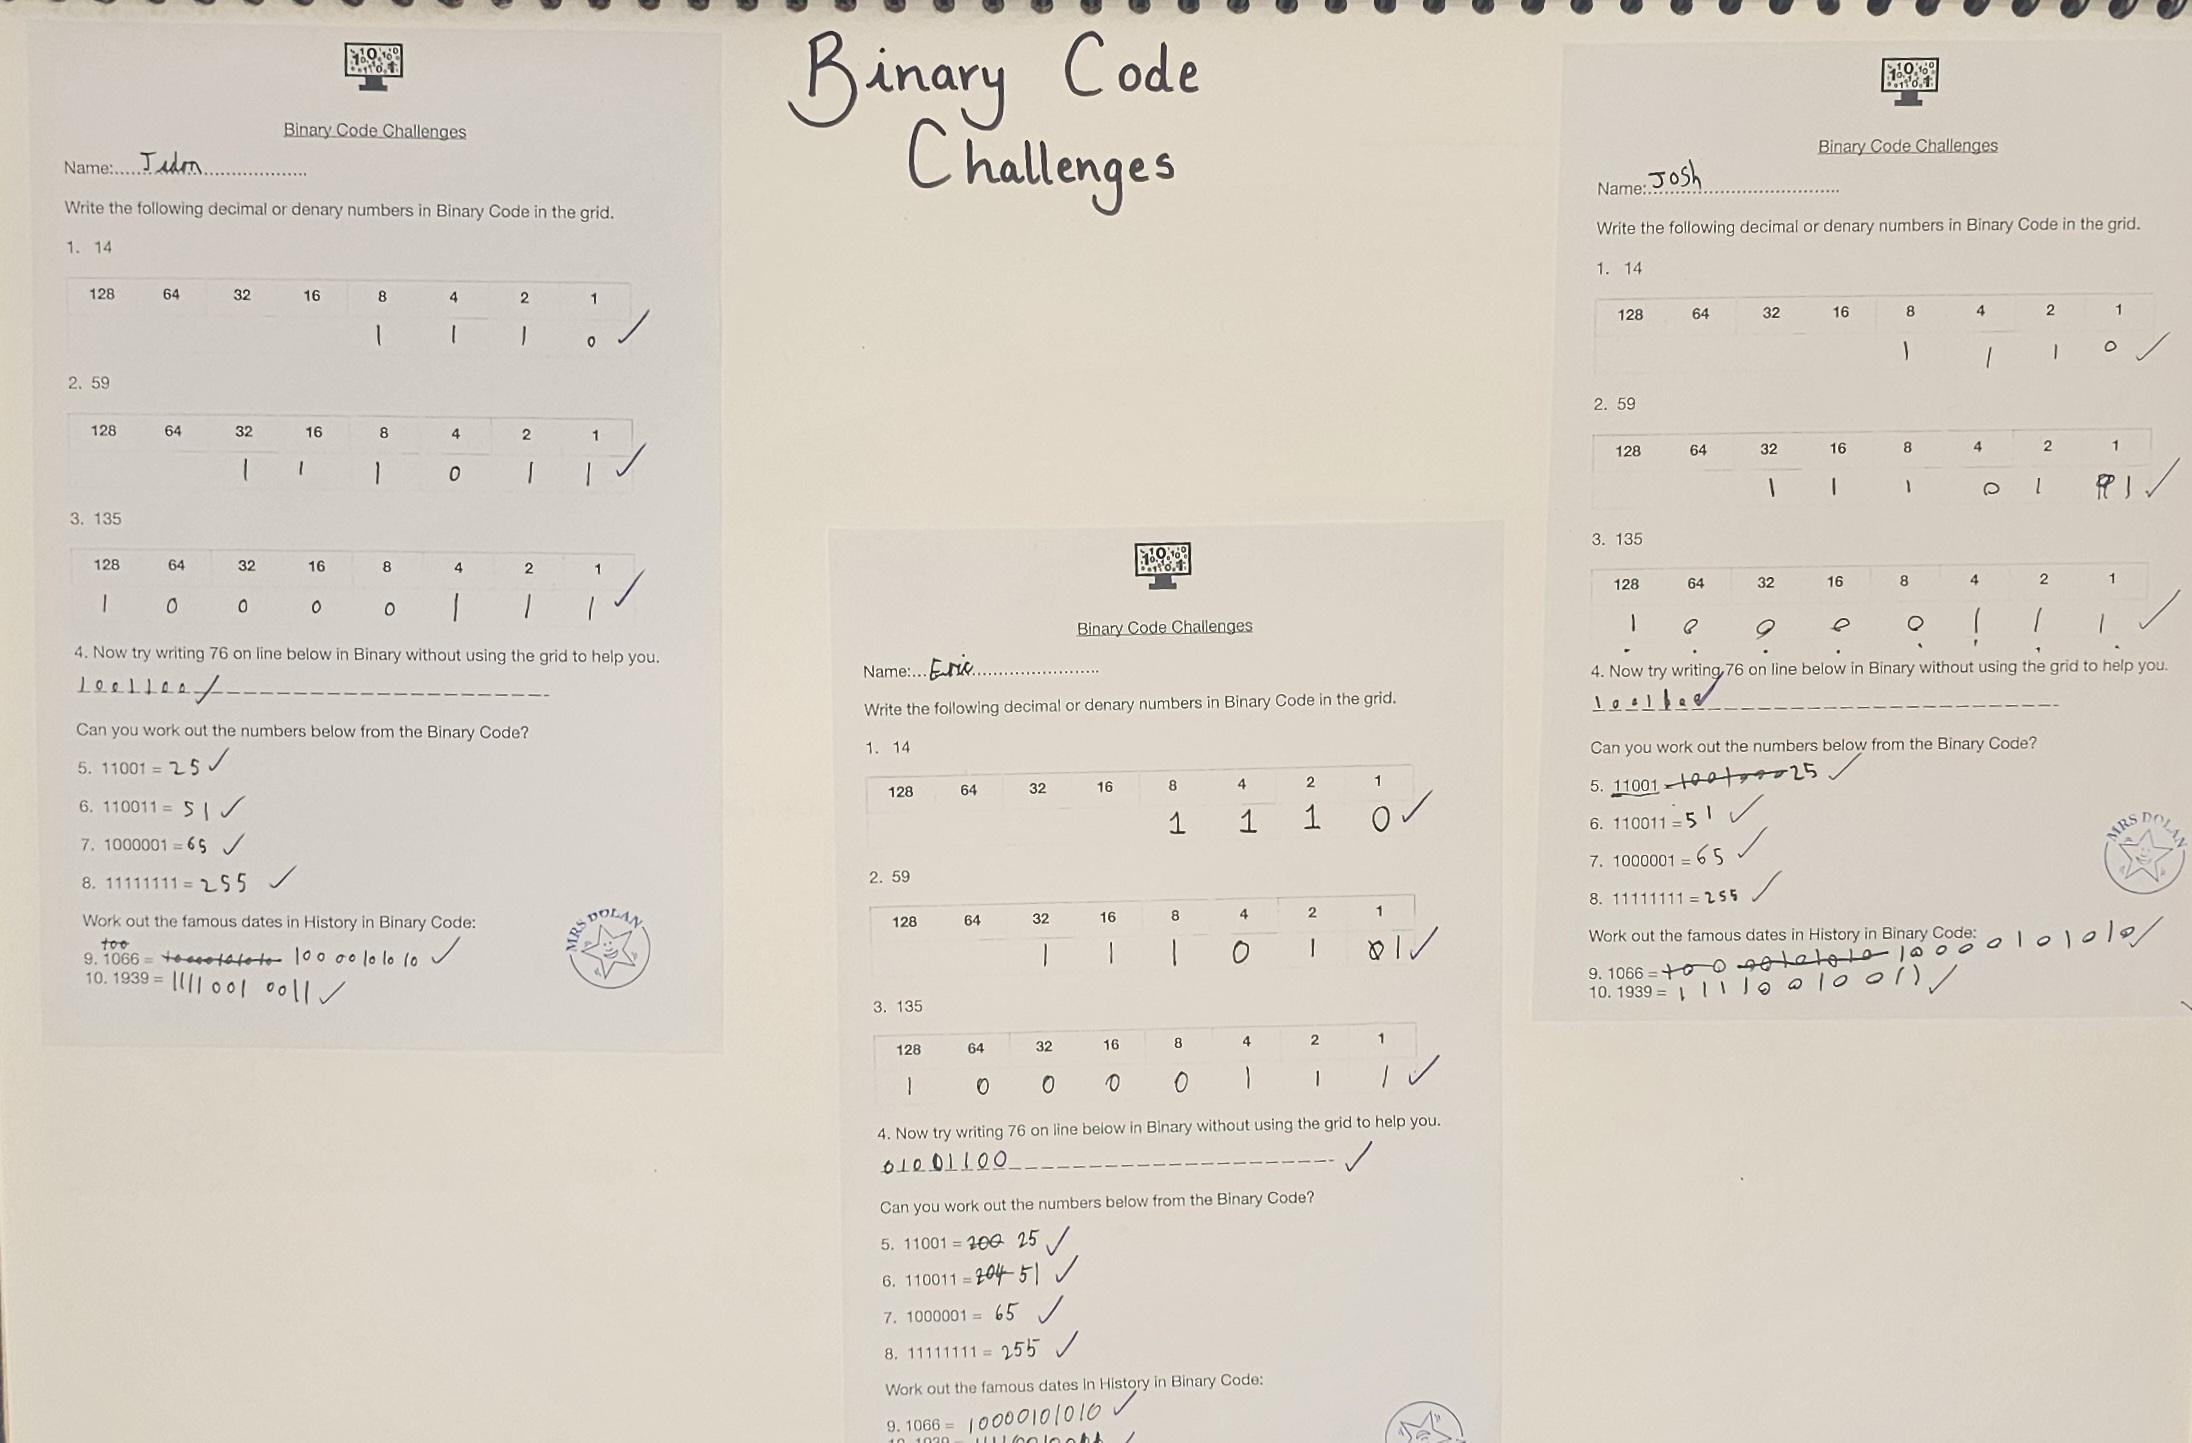 Binary Code
Challenges
Binary Code Challenges
Name:.....Jidon...................
Write the following decimal or denary numbers in Binary Code in the grid.
1. 14
128 64 32 16 8 4 2 1
1 1 1 0
2. 59
128 64 32 16 8 4 2 1
1 1 1 0 1 1
3. 135
128 64 32 16 8 4 2 1
1 0 0 0 0 1 1 1
4. Now try writing 76 on line below in Binary without using the grid to help you.
1001100
Can you work out the numbers below from the Binary Code?
5. 11001 = 25
6. 110011 = 51
7. 1000001 = 65
8. 11111111 = 255
Work out the famous dates in History in Binary Code:
9. 1066 = 10000101010
10. 1939 = 11110010011
MRS DOLAN
Binary Code Challenges
Name:...Eric.....................
Write the following decimal or denary numbers in Binary Code in the grid.
1. 14
128 64 32 16 8 4 2 1
1 1 1 0
2. 59
128 64 32 16 8 4 2 1
1 1 1 0 1 0 1
3. 135
128 64 32 16 8 4 2 1
1 0 0 0 0 1 1 1
4. Now try writing 76 on line below in Binary without using the grid to help you.
01001100
Can you work out the numbers below from the Binary Code?
5. 11001 = 200 25
6. 110011 = 204 51
7. 1000001 = 65
8. 11111111 = 255
Work out the famous dates in History in Binary Code:
9. 1066 = 10000101010
Binary Code Challenges
Name:.Josh.........................
Write the following decimal or denary numbers in Binary Code in the grid.
1. 14
128 64 32 16 8 4 2 1
1 1 1 0
2. 59
128 64 32 16 8 4 2 1
1 1 1 0 1 1
3. 135
128 64 32 16 8 4 2 1
1 0 0 0 0 1 1 1
4. Now try writing 76 on line below in Binary without using the grid to help you.
1001100
Can you work out the numbers below from the Binary Code?
5. 11001 = 25
6. 110011 = 51
7. 1000001 = 65
8. 11111111 = 255
MRS DOLAN
Work out the famous dates in History in Binary Code:
9. 1066 = 10000101010
10. 1939 = 11110010011